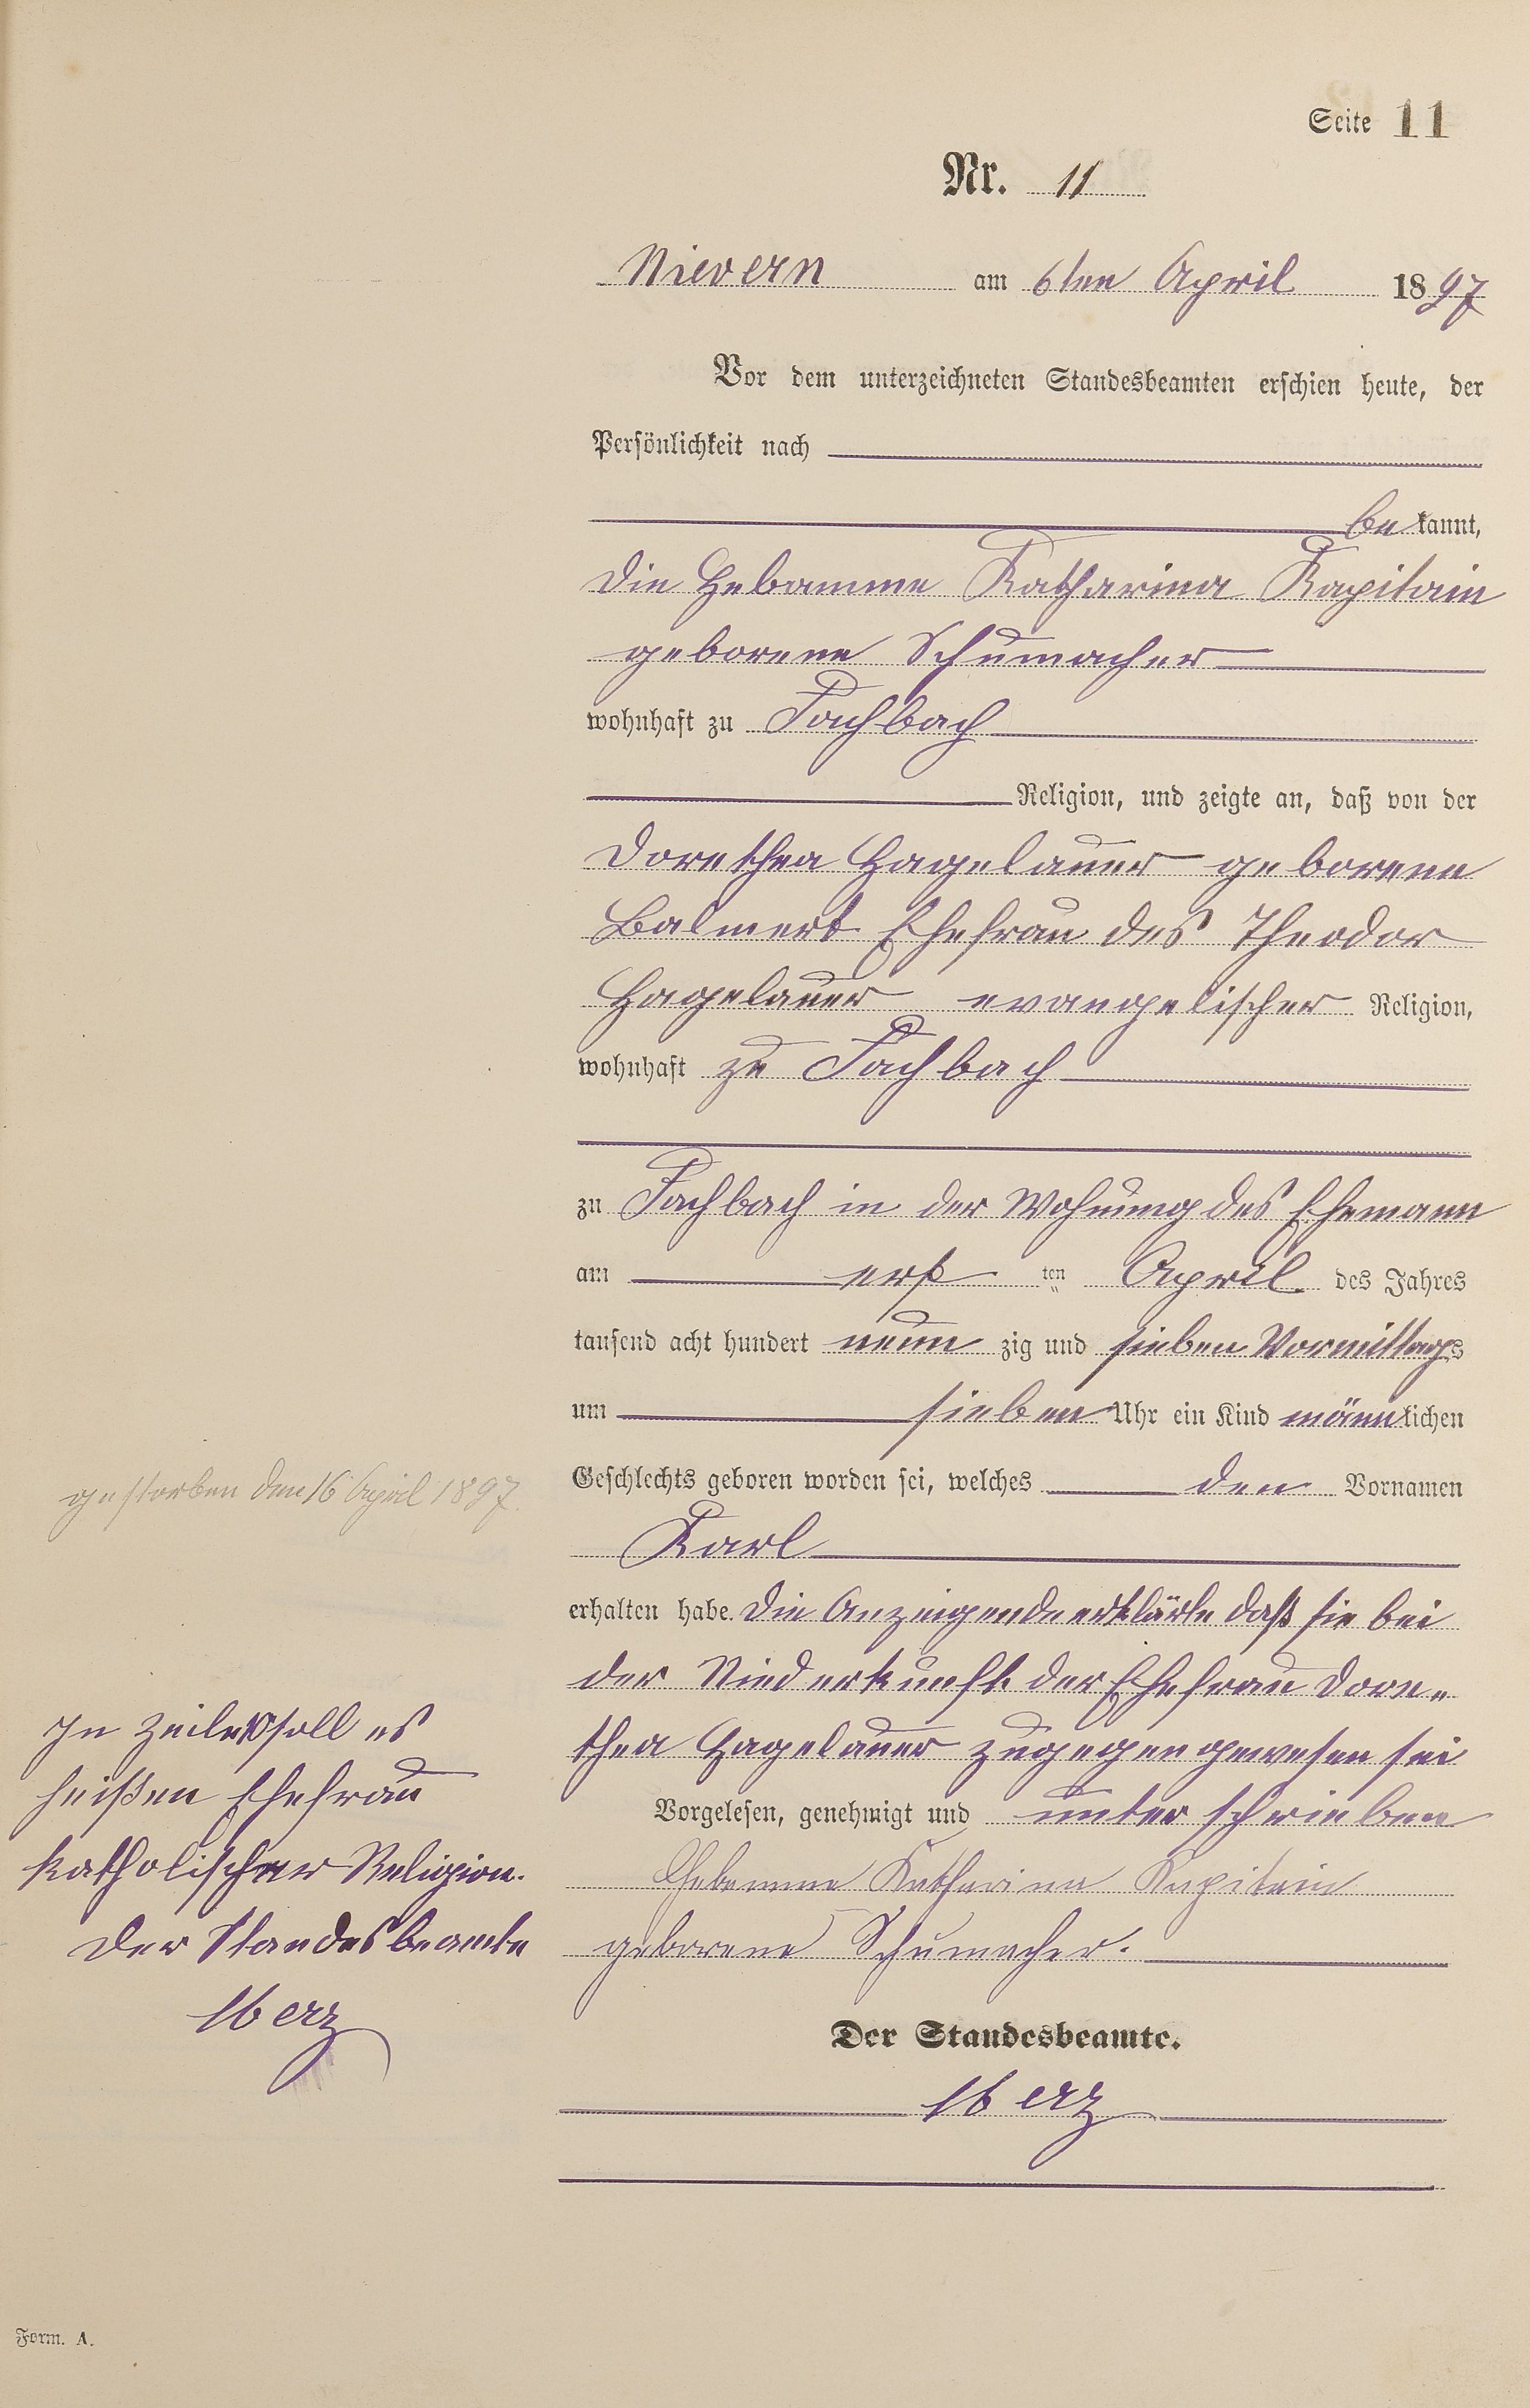 Seite 11
Nr. 11
Nievern am 6ten April 1897
Vor dem unterzeichneten Standesbeamten erschien heute, der
Persönlichkeit nach
be kannt,
die Hebamme Katharina Kapitain
geborene Schumacher
wohnhaft zu Fachbach
Religion, und zeigte an, daß von der
Dorethea Hagelauer geborene
Balmert Ehefrau des Theodor
Hagelauer evangelischer Religion,
wohnhaft zu Fachbach
zu Fachbach in der Wohnung des Ehemann
am erst ten April des Jahres
tausend acht hundert neun zig und sieben Vormittags
um sieben Uhr ein Kind männlichen
Geschlechts geboren worden sei, welches den Vornamen
Karl
erhalten habe. Die Anzeigende erklärte daß sie bei
der Niederkunft der Ehefrau Dore-
thea Hagelauer zugegen gewesen sei
Vorgelesen, genehmigt und unterschrieben
Hebamme Katharina Kapitain
geborene Schumacher.
Der Standesbeamte.
gestorben den 16 April 1897.
In Zeile soll es
heißen Ehefrau
katholischer Religion.
Der Standesbeamte
Form. A.